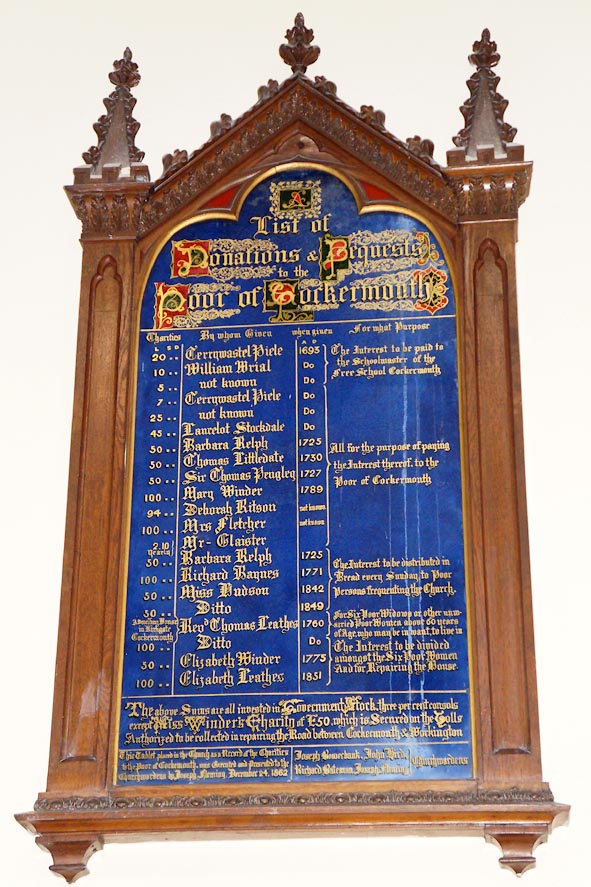 A
List of
Donations & Bequests
to the
Poor of Cockermouth
Charities By whom Given when given For what Purpose
L S D A D
20 .. Gerrywastel Piele 1695 The Interest to be paid to
10 .. William Wrial Do the Schoolmaster of the
5 .. not known Do Free School Cockermouth
7 .. Gerrywastel Piele Do
25 .. not known Do
45 .. Laurelot Stockdale Do
50 .. Barbara Relph 1725 All for the purpose of paying
50 .. Thomas Littledale 1730 the Interest thereof, to the
50 .. Sir Thomas Pengley 1727 Poor of Cockermouth
100 .. Mary Winder 1789
94 .. Deborah Ritson not known
100 .. Mrs Fletcher not known
2.10 yearly Mr - Glaister
50 .. Barbara Relph 1725 The Interest to be distributed in
100 .. Richard Baynes 1771 Bread every Sunday, to Poor
50 .. Miss Hudson 1842 Persons frequenting the Church.
50 .. Ditto 1849
A dwelling House in Kirkgate Cockermouth Revd Thomas Leathes 1760 For Six Poor Widows or other unmarried Poor Women above 60 years of Age, who may be in want, to live in
100 .. Ditto Do The Interest to be divided
50 .. Elizabeth Winder 1775 amongst the Six Poor Women
100 .. Elizabeth Leathes 1851 And for Repairing the House
The above Sums are all invested in Government Stock, three per cent consols
except Miss Winder's Charity of £50, which is Secured on the Tolls
Authorized to be collected in repairing the Road between Cockermouth & Workington
This Tablet placed in the Church as a Record of the Charities
to the Poor of Cockermouth, was Executed and Presented to the
Churchwardens by Joseph Fleming December 24, 1862
Joseph Bowerbank, John
Richard Bateman, Joseph Fleming Churchwardens